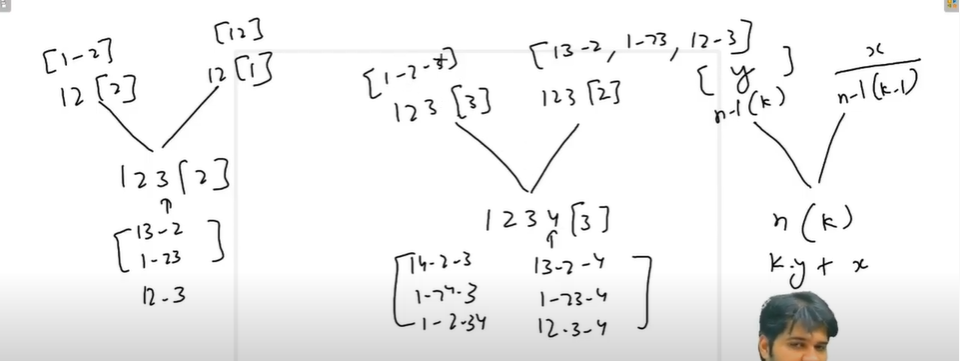 [1-2]
12 [2]
[12]
12 [1]
123 [2]
↑
[13-2
1-23]
12-3
[1-2-3]
123 [3]
[13-2, 1-23, 12-3]
123 [2]
1234 [3]
↑
[14-2-3 13-2-4
1-24-3 1-23-4
1-2-34 12-3-4]
[y]
n-1(k)
x
n-1(k-1)
n(k)
k.y + x